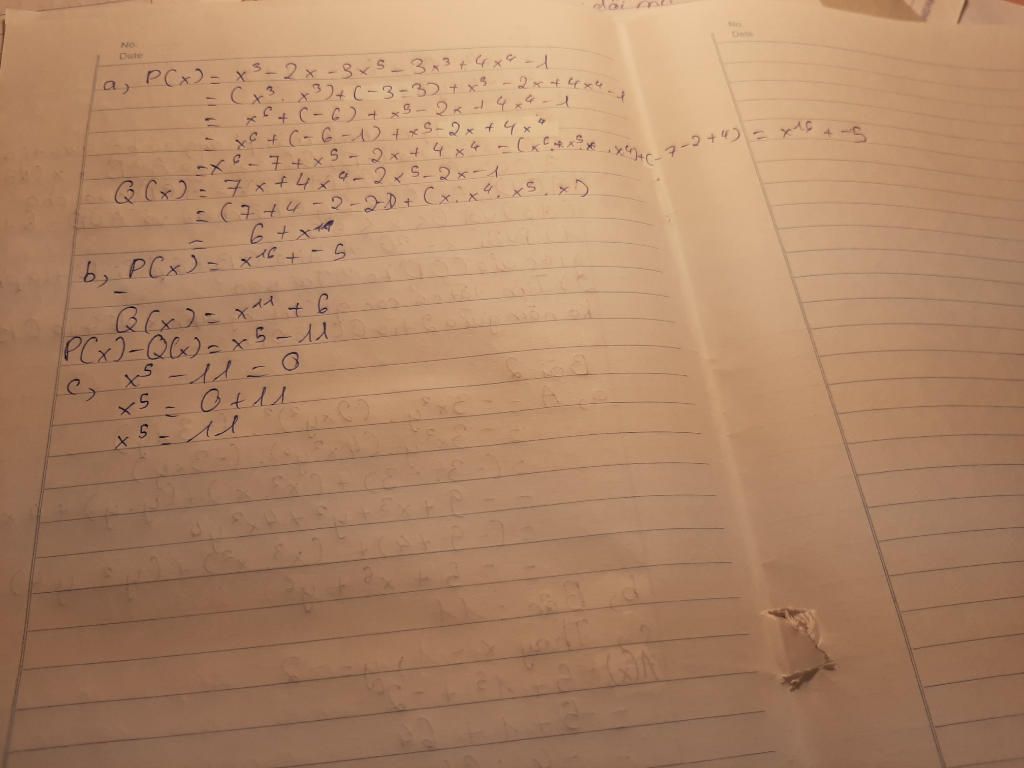 dài mu
No.
Date
No.
Date
a, P(x) = x³ - 2x - 3x⁵ - 3x³ + 4x⁴ - 1
= (x³ . x³) + (-3-3) + x⁵ - 2x + 4x⁴ - 1
= x⁶ + (-6) + x⁵ - 2x + 4x⁴ - 1
= x⁶ + (-6-1) + x⁵ - 2x + 4x⁴
= x⁶ - 7 + x⁵ - 2x + 4x⁴ = (x⁶ + x⁵ x . x⁴) + (-7-2+4) = x¹⁶ + -5
Q(x) = 7x + 4x⁴ - 2x⁵ - 2x - 1
= (7 + 4 - 2 - 2 1) + (x . x⁴ . x⁵ . x)
= 6 + x¹¹
b, P(x) = x¹⁶ + -5
-
Q(x) = x¹¹ + 6
P(x) - Q(x) = x⁵ - 11
c, x⁵ - 11 = 0
x⁵ = 0 + 11
x⁵ = 11